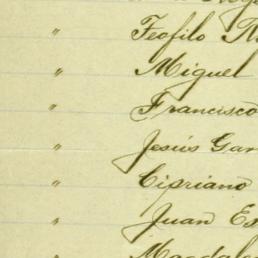 " Teofilo
" Miguel
" Francisco
" Jesús Gar
" Cipriano
" Juan Es
Magdale